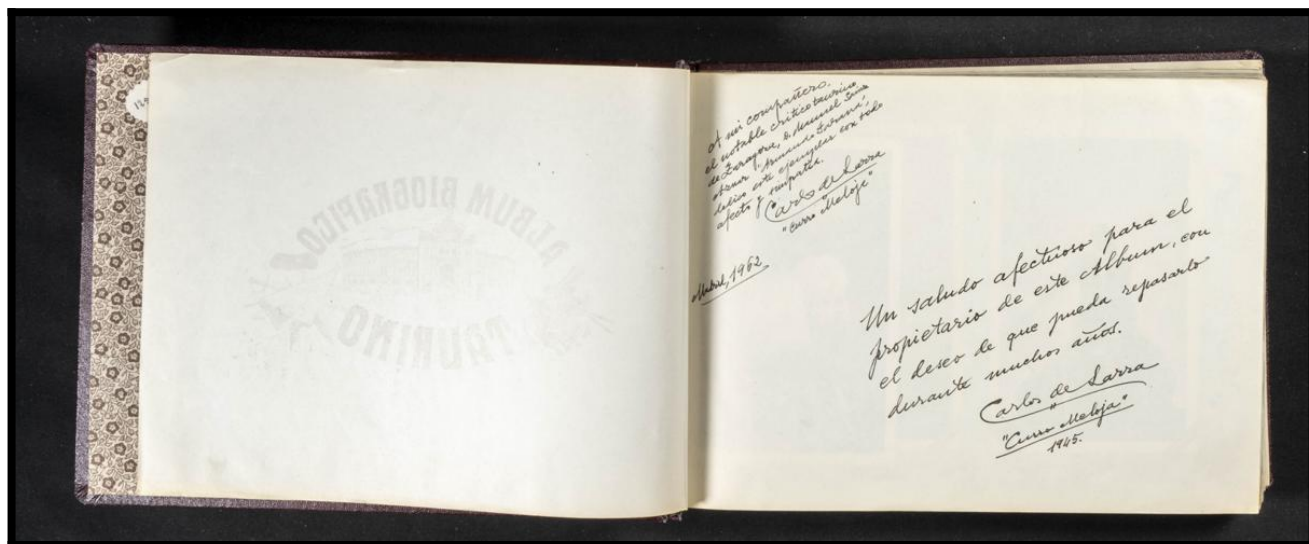 ALBUM BIOGRAFICO
TAURINO
A mi compañero.
el notable crítico taurino
de Zaragoza, D. Manuel
dedico este ejemplar con todo
afecto y simpatía.
Carlos de Larra
"Curro Meloja"
Madrid, 1962
Un saludo afectuoso para el
propietario de este Album, con
el deseo de que pueda repasarlo
durante muchos años.
Carlos de Larra
"Curro Meloja"
1945.